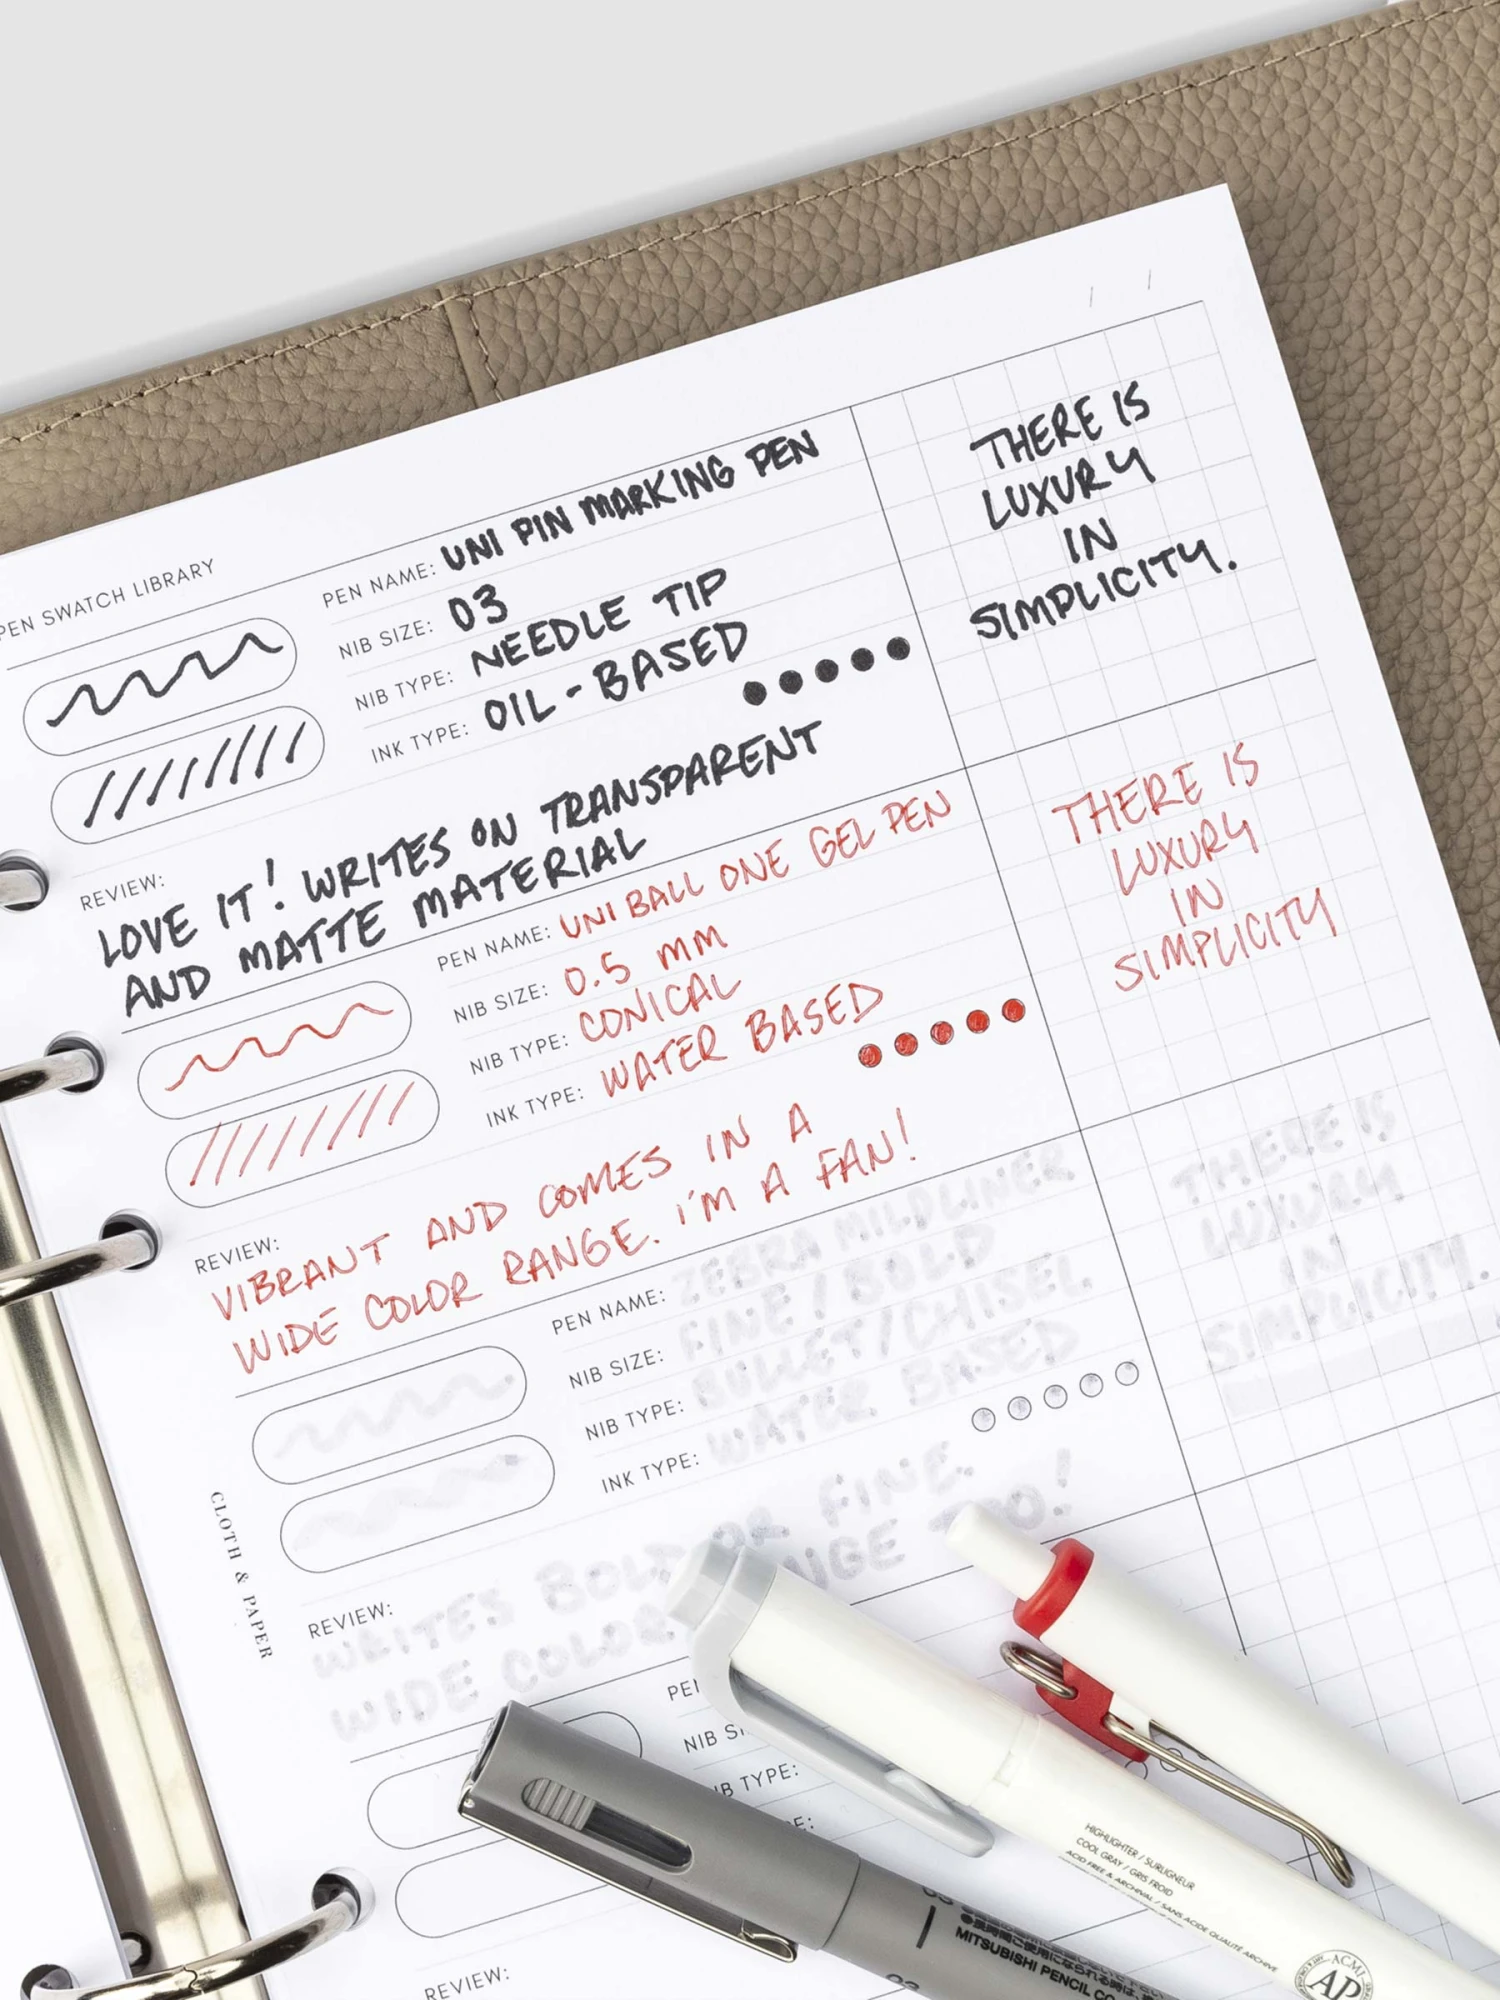 PEN SWATCH LIBRARY
PEN NAME: UNI PIN MARKING PEN
NIB SIZE: 03
NIB TYPE: NEEDLE TIP
INK TYPE: OIL-BASED
REVIEW:
LOVE IT! WRITES ON TRANSPARENT
AND MATTE MATERIAL
THERE IS
LUXURY
IN
SIMPLICITY.
PEN NAME: UNI BALL ONE GEL PEN
NIB SIZE: 0.5 MM
NIB TYPE: CONICAL
INK TYPE: WATER BASED
REVIEW:
VIBRANT AND COMES IN A
WIDE COLOR RANGE. I'M A FAN!
THERE IS
LUXURY
IN
SIMPLICITY
PEN NAME: ZEBRA MILDLINER
NIB SIZE: FINE / BOLD
NIB TYPE: BULLET/CHISEL
INK TYPE: WATER BASED
REVIEW:
WRITES BOLD OR FINE.
WIDE COLOR TOO!
THERE IS
LUXURY
IN
SIMPLICITY.
CLOTH & PAPER
NIB
TYPE:
REVIEW:
HIGHLIGHTER / SURLIGNEUR
COOL GRAY / GRIS FROID
ACID FREE & ARCHIVAL / SANS ACIDE QUALITÉ ARCHIVE
ACMI
AP
MITSUBISHI PENCIL CO
03